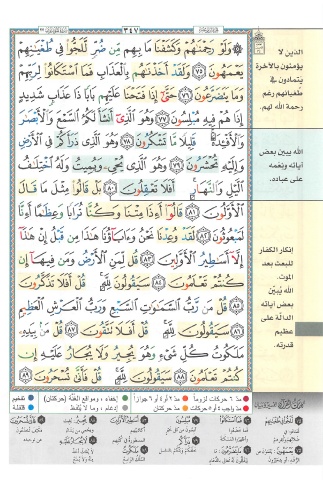 ٣٤٧
۞ وَلَوْ رَحِمْنَٰهُمْ وَكَشَفْنَا مَا بِهِم مِّن ضُرٍّ لَّلَجُّوا۟ فِى طُغْيَٰنِهِمْ
يَعْمَهُونَ ٧٥ وَلَقَدْ أَخَذْنَٰهُم بِٱلْعَذَابِ فَمَا ٱسْتَكَانُوا۟ لِرَبِّهِمْ
وَمَا يَتَضَرَّعُونَ ٧٦ حَتَّىٰٓ إِذَا فَتَحْنَا عَلَيْهِم بَابًا ذَا عَذَابٍ شَدِيدٍ
إِذَا هُمْ فِيهِ مُبْلِسُونَ ٧٧ وَهُوَ ٱلَّذِىٓ أَنشَأَ لَكُمُ ٱلسَّمْعَ وَٱلْأَبْصَٰرَ
وَٱلْأَفْـِٔدَةَ ۚ قَلِيلًا مَّا تَشْكُرُونَ ٧٨ وَهُوَ ٱلَّذِى ذَرَأَكُمْ فِى ٱلْأَرْضِ
وَإِلَيْهِ تُحْشَرُونَ ٧٩ وَهُوَ ٱلَّذِى يُحْىِۦ وَيُمِيتُ وَلَهُ ٱخْتِلَٰفُ
ٱلَّيْلِ وَٱلنَّهَارِ ۚ أَفَلَا تَعْقِلُونَ ٨٠ بَلْ قَالُوا۟ مِثْلَ مَا قَالَ
ٱلْأَوَّلُونَ ٨١ قَالُوٓا۟ أَءِذَا مِتْنَا وَكُنَّا تُرَابًا وَعِظَٰمًا أَءِنَّا
لَمَبْعُوثُونَ ٨٢ لَقَدْ وُعِدْنَا نَحْنُ وَءَابَآؤُنَا هَٰذَا مِن قَبْلُ إِنْ هَٰذَآ
إِلَّآ أَسَٰطِيرُ ٱلْأَوَّلِينَ ٨٣ قُل لِّمَنِ ٱلْأَرْضُ وَمَن فِيهَآ إِن
كُنتُمْ تَعْلَمُونَ ٨٤ سَيَقُولُونَ لِلَّهِ ۚ قُلْ أَفَلَا تَذَكَّرُونَ
٨٥ قُلْ مَن رَّبُّ ٱلسَّمَٰوَٰتِ ٱلسَّبْعِ وَرَبُّ ٱلْعَرْشِ ٱلْعَظِيمِ
٨٦ سَيَقُولُونَ لِلَّهِ ۚ قُلْ أَفَلَا تَتَّقُونَ ٨٧ قُلْ مَنۢ بِيَدِهِۦ
مَلَكُوتُ كُلِّ شَىْءٍ وَهُوَ يُجِيرُ وَلَا يُجَارُ عَلَيْهِ إِن
كُنتُمْ تَعْلَمُونَ ٨٨ سَيَقُولُونَ لِلَّهِ ۚ قُلْ فَأَنَّىٰ تُسْحَرُونَ ٨٩
الذين لا
يؤمنون بالآخرة
يتمادون في
طغيانهم رغم
رحمة الله لهم.
الله يبين بعض
آياته ونعمه
على عباده.
إنكار الكفار
للبعث بعد
الموت.
الله يُبيّن
بعض آياته
الدالة على
عظيم
قدرته.
مدّ ٦ حركات لزوماً مدّ٢ أو٤ أو٦ جوازاً إخفاء، ومواقع الغُنَّة (حركتان) تفخيم
مدّ واجب ٤ أو٥ حركات مدّ حركتان إدغام، وما لا يُلفَظ قلقلة